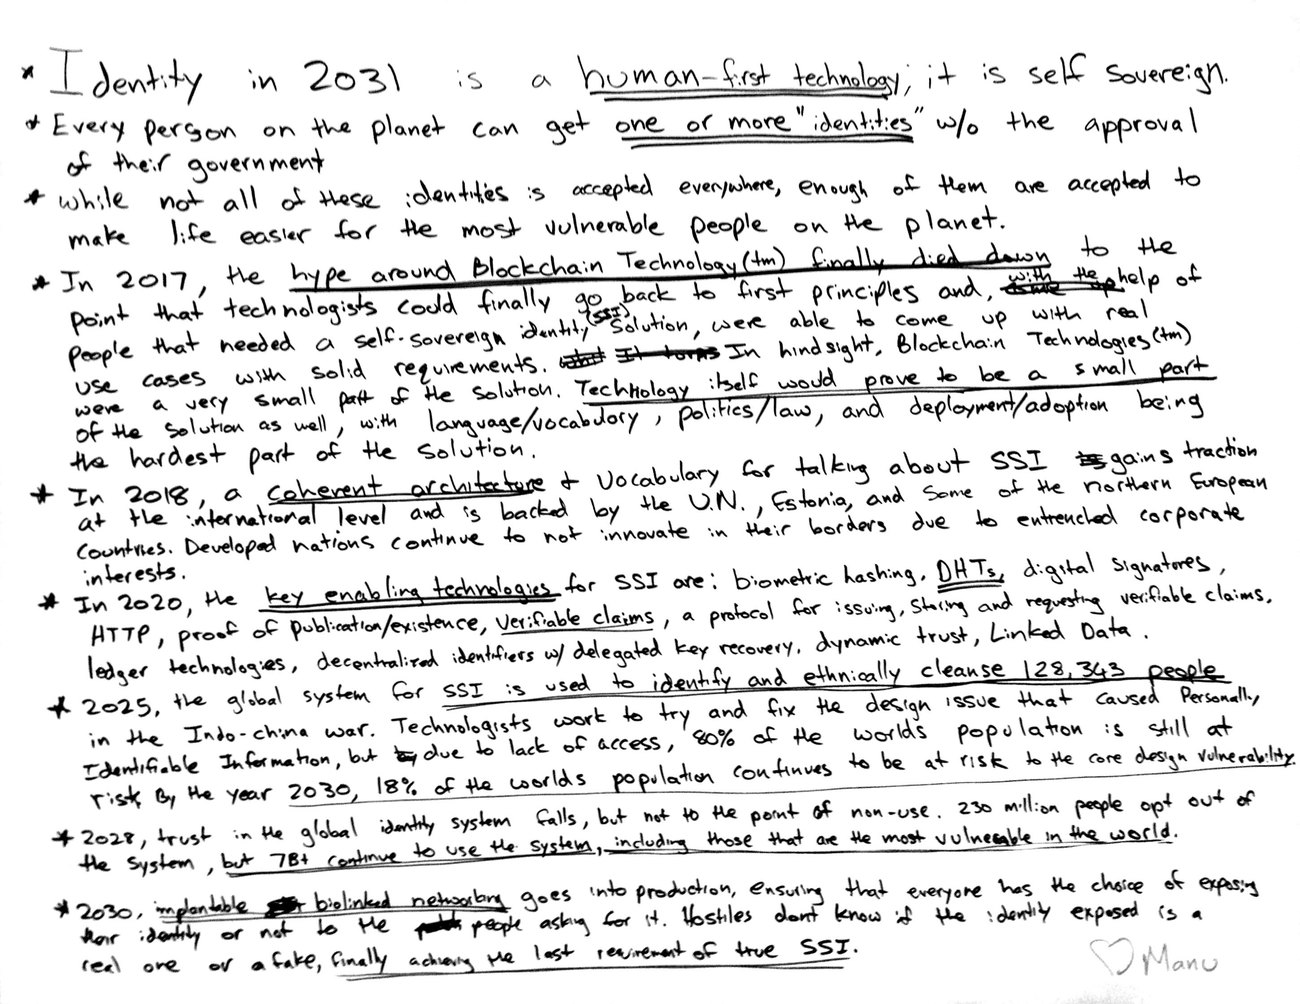 * Identity in 2031 is a human-first technology; it is self sovereign.
* Every person on the planet can get one or more "identities" w/o the approval
of their government
* while not all of these identities is accepted everywhere, enough of them are accepted to
make life easier for the most vulnerable people on the planet.
* In 2017, the hype around Blockchain Technology(tm) finally died down to the
point that technologists could finally go back to first principles and, with the help of
people that needed a self-sovereign identity (SSI) solution, were able to come up with real
use cases with solid requirements. In hindsight, Blockchain Technologies(tm)
were a very small part of the solution. Technology itself would prove to be a small part
of the solution as well, with language/vocabulary, politics/law, and deployment/adoption being
the hardest part of the solution.
* In 2018, a coherent architecture + vocabulary for talking about SSI gains traction
at the international level and is backed by the U.N., Estonia, and some of the northern European
countries. Developed nations continue to not innovate in their borders due to entrenched corporate
interests.
* In 2020, the key enabling technologies for SSI are: biometric hashing, DHTs, digital signatures,
HTTP, proof of publication/existence, verifiable claims, a protocol for issuing, storing and requesting verifiable claims,
ledger technologies, decentralized identifiers w/ delegated key recovery, dynamic trust, Linked Data.
* 2025, the global system for SSI is used to identify and ethnically cleanse 128,343 people
in the Indo-china war. Technologists work to try and fix the design issue that caused Personally
Identifiable Information, but due to lack of access, 80% of the worlds population is still at
risk By the year 2030, 18% of the worlds population continues to be at risk to the core design vulnerability.
* 2028, trust in the global identity system falls, but not to the point of non-use. 230 million people opt out of
the system, but 7B+ continue to use the system, including those that are the most vulnerable in the world.
* 2030, implantable biolinked networking goes into production, ensuring that everyone has the choice of exposing
their identity or not to the people asking for it. Hostiles dont know if the identity exposed is a
real one or a fake, finally achieving the last requirement of true SSI.
♡ Manu